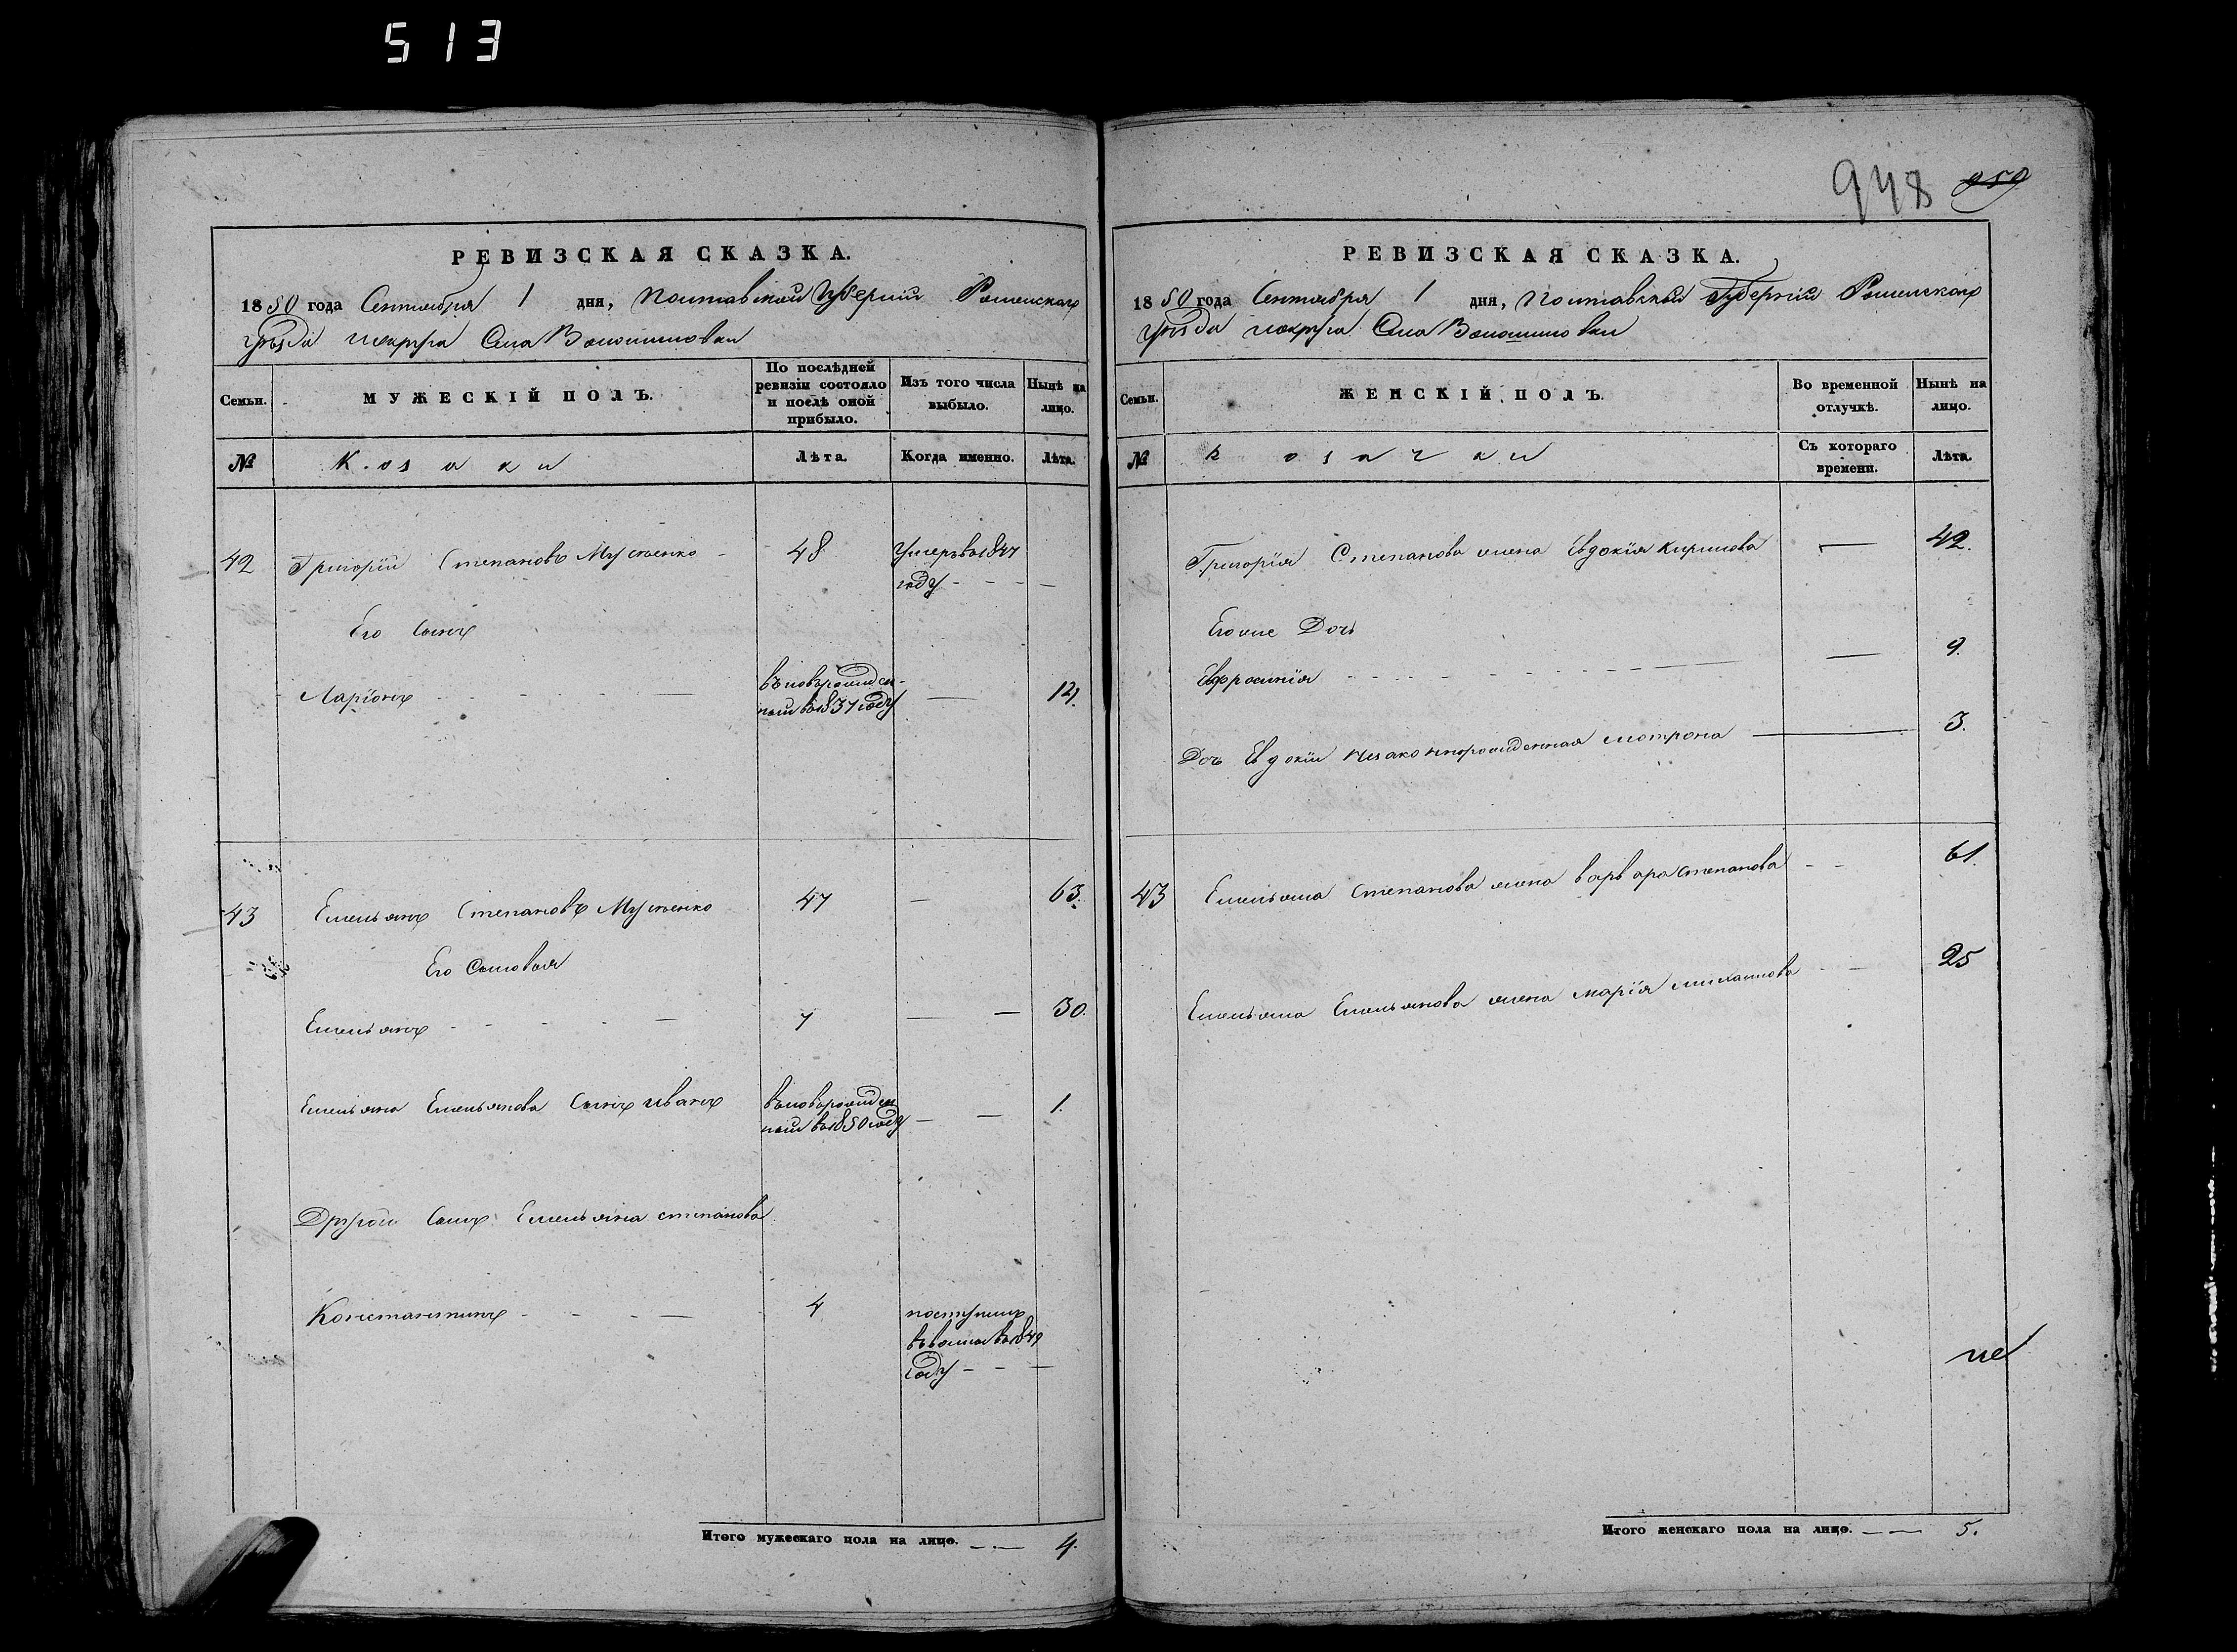 513
948 950
РЕВИЗСКАЯ СКАЗКА.
1850 года Сентября 1 дня, Полтавской Губернии Роменского
уезда и округа Села Волошиновки
Семьи.
МУЖЕСКІЙ ПОЛЪ.
По послѣдней ревизіи состояло и послѣ оной прибыло.
Изъ того числа выбыло.
Нынѣ на лицо.
№
Козаки
Лѣта.
Когда именно.
Лѣта.
42 Григорій Степановъ Мусіенко 48 Умеръ в 1847
году
Его Сынъ
Ларіонъ въновърожден-
ный в 1837 году 12.
43 Емельянъ Степановъ Мусіенко 47 — 63.
Его Сыновья
Емельянъ 7 — 30.
Емельяна Емельянова Сынъ иванъ въновърожден
ный в 1850 году — 1.
Другой Сынъ Емельяна степанова
Константинъ 4 поступилъ
въ 1849
году
Итого мужескаго пола на лицо. 4.
РЕВИЗСКАЯ СКАЗКА.
1850 года Сентября 1 дня, Полтавской Губернии Роменского
уезда и округа Села Волошиновки
Семьи.
ЖЕНСКІЙ ПОЛЪ.
Во временной отлучкѣ.
Нынѣ на лицо.
№
Козачки
Съ котораго времени.
Лѣта.
Григорія Степанова жена Евдокія Кирилова — 42.
Егоже Дочь
Евфросинія — 9.
Дочь Евдокіи Незаконнорожденная мотрона — 3.
43 Емельяна Степанова жена варвара степанова 61.
Емельяна Емельянова жена марія михаилова 25
не
Итого женскаго пола на лицо. 5.